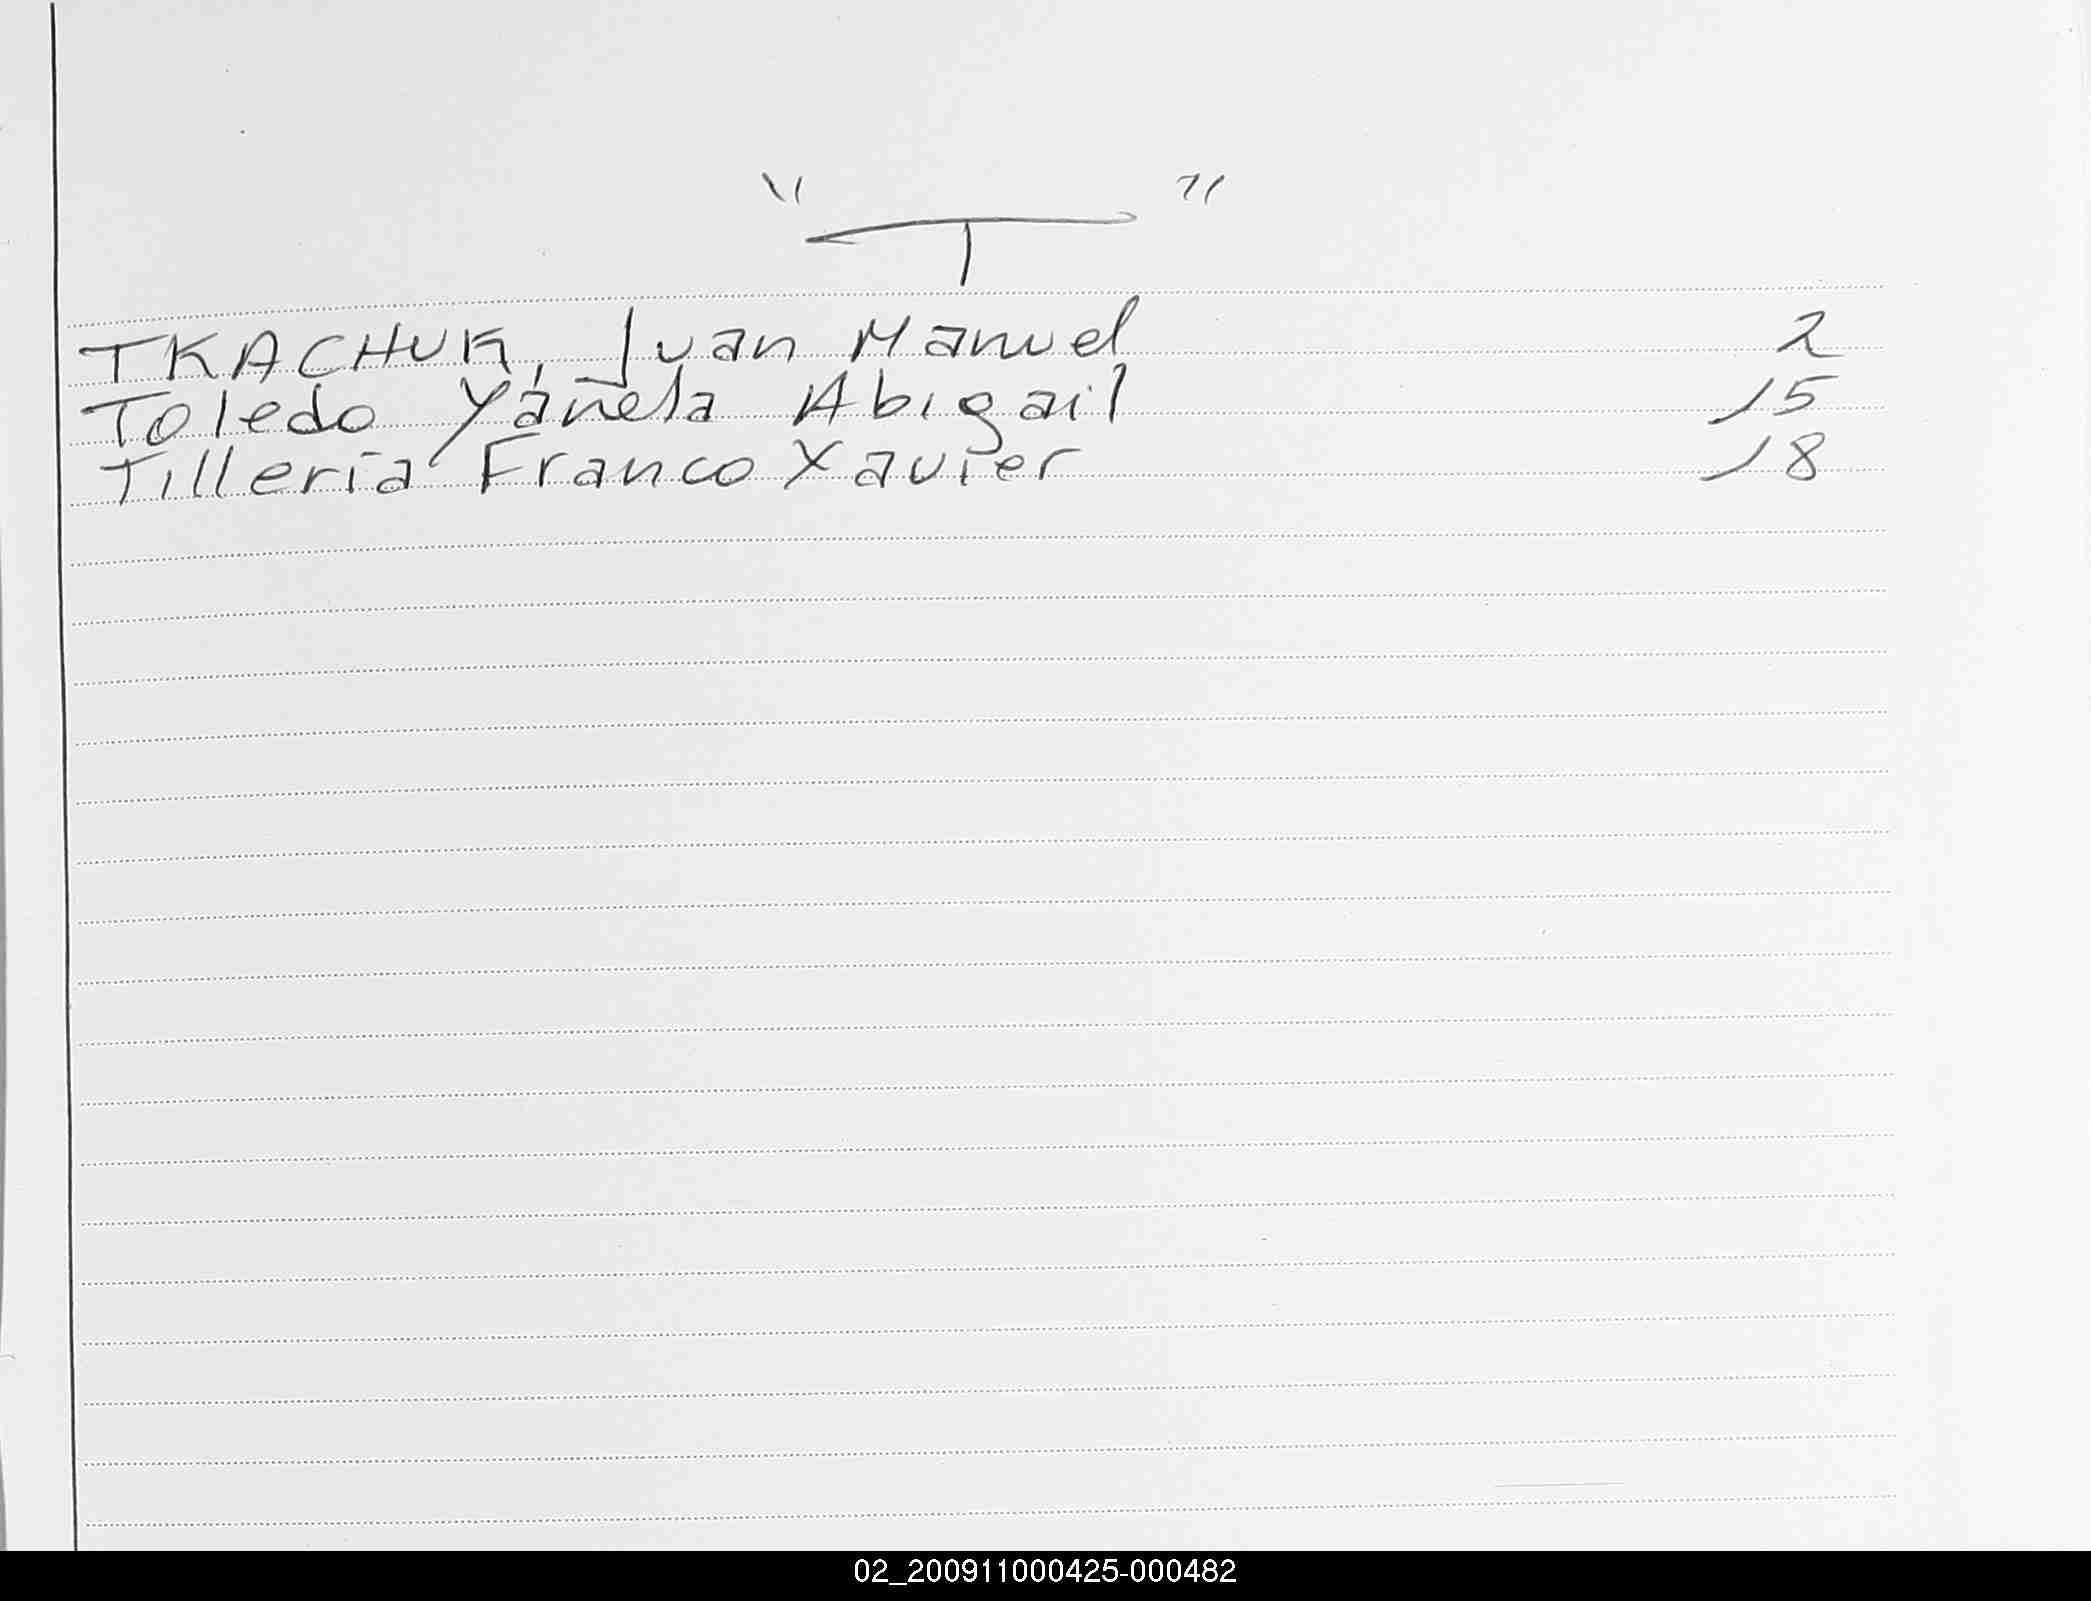 "T"
TKACHUK, Juan Manuel 2
Toledo Yañela Abigail 15
Tilleria Franco Xavier 18
02_200911000425-000482